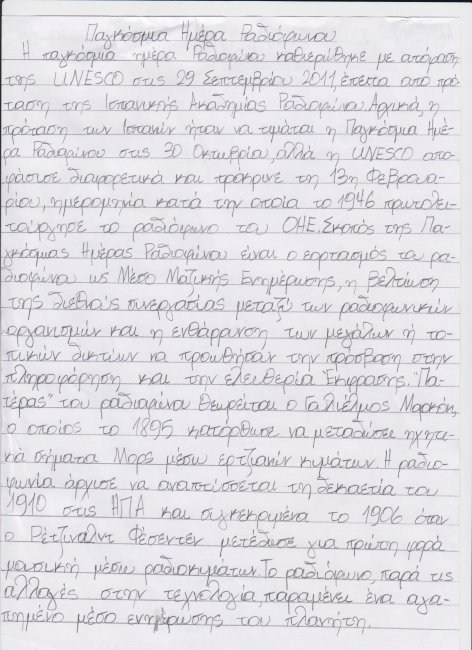 Παγκόσμια Ημέρα Ραδιοφώνου
Η παγκόσμια ημέρα Ραδιοφώνου καθιερώθηκε με απόφαση
της UNESCO στις 29 Σεπτεμβρίου 2011, έπειτα από πρό-
ταση της Ισπανικής Ακαδημίας Ραδιοφώνου. Αρχικά, η
πρόταση των Ισπανών ήταν να τιμάται η Παγκόσμια Ημέ-
ρα Ραδιοφώνου στις 30 Οκτωβρίου, αλλά η UNESCO απο-
φάσισε διαφορετικά και πρόκρινε τη 13η Φεβρουα-
ρίου, ημερομηνία κατά την οποία το 1946 πρωτολει-
τούργησε το ραδιόφωνο του ΟΗΕ. Σκοπός της Πα-
γκόσμιας Ημέρας Ραδιοφώνου είναι ο εορτασμός του ρα-
διοφώνου ως Μέσο Μαζικής Ενημέρωσης, η βελτίωση
της διεθνούς συνεργασίας μεταξύ των ραδιοφωνικών
οργανισμών και η ενθάρρυνση των μεγάλων ή το-
πικών δικτύων να προωθήσουν την πρόσβαση στην
πληροφόρηση και την ελευθερία Έκφρασης. "Πα-
τέρας" του ραδιοφώνου θεωρείται ο Γουλιέλμος Μαρκόνι,
ο οποίος το 1895 κατόρθωσε να μεταδώσει ηχητι-
κά σήματα Μορς μέσω ερτζιανών κυμάτων. Η ραδιο-
φωνία άρχισε να αναπτύσσεται τη δεκαετία του
1910 στις ΗΠΑ και συγκεκριμένα το 1906 όταν
ο Ρέτζιναλντ Φέσεντεν μετέδωσε για πρώτη φορά
μουσική μέσω ραδιοκυμάτων. Το ραδιόφωνο, παρά τις
αλλαγές στην τεχνολογία, παραμένει ένα αγα-
πημένο μέσο ενημέρωσης του πλανήτη.